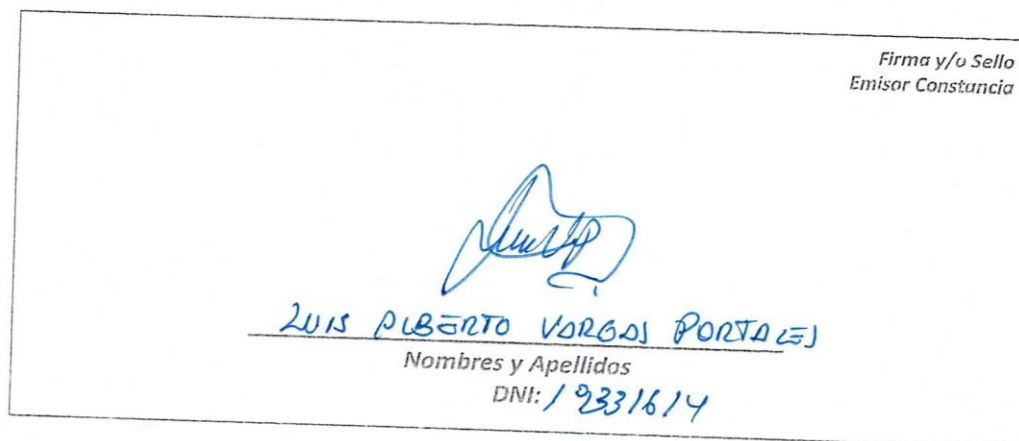 Firma y/o Sello
Emisor Constancia
LUIS ALBERTO VARGAS PORTALES
Nombres y Apellidos
DNI: 19331614